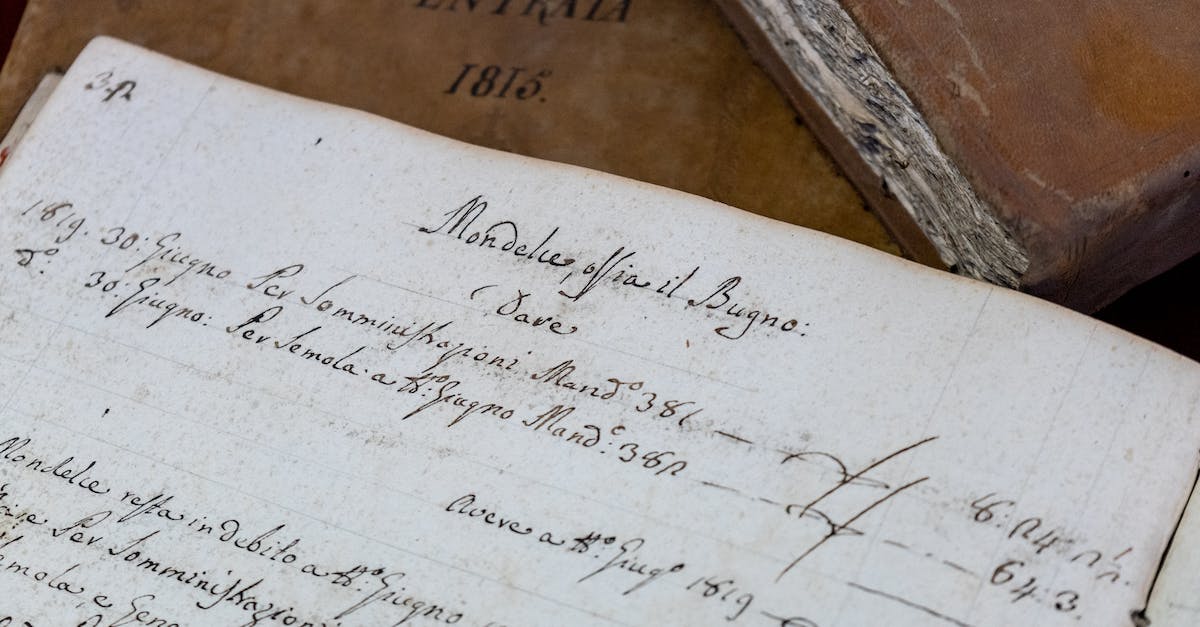 ENTRATA
1815.
Mondelce, ossia il Bugno:
Dare
1819. 30: Giugno Per Somministrazioni Mand:º 381
dº. 30. Giugno: Per Semola a tt:º Giugno Mand:º 382
64 3.
Avere a tt:º Giugº 1819
Mondelce resta in debito a tt:º Giugno
Per Somministrazioni